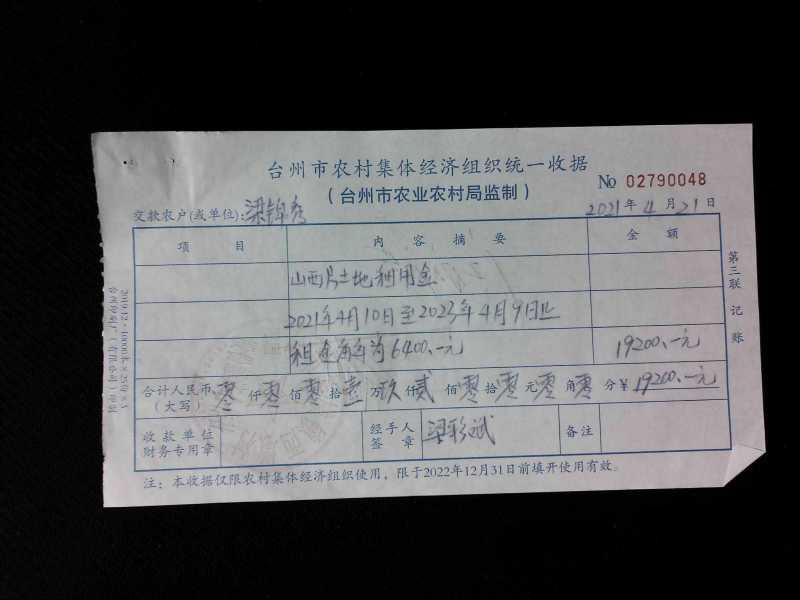 台州市农村集体经济组织统一收据
(台州市农业农村局监制)
No 02790048
交款农户(或单位):梁锦秀
2021年4月21日
项目 内容摘要 金额
山西片土地租用金
2021年4月10日至2023年4月9日止
租金每年为6400.-元 19200.-元
合计人民币(大写) 零仟零佰零拾壹万玖仟贰佰拾零元零角零分¥19200.-元
收款单位财务专用章 经手人签章 梁彩斌 备注
注:本收据仅限农村集体经济组织使用,限于2022年12月31日前填开使用有效。
第三联 记账